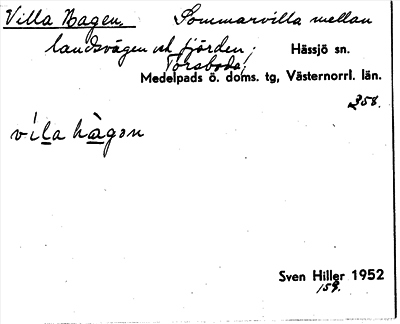 Villa Hagen. Sommarvilla mellan
landsvägen och fjorden; Hässjö sn.
Torsboda;
Medelpads ö. doms. tg, Västernorrl. län.
358.
vila hàgon
Sven Hiller 1952
159.